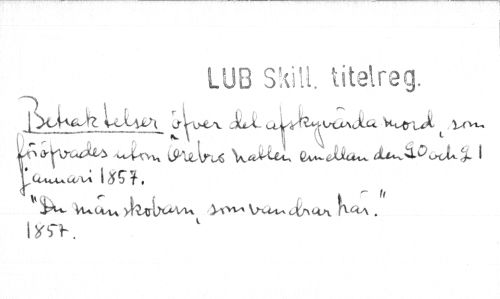 LUB Skill. titelreg.
Betraktelser öfver det afskyvärda mord, som
föröfvades utom Örebro natten emellan den 20 och 21
januari 1857.
"Du mänskobarn, som vandrar här."
1857.